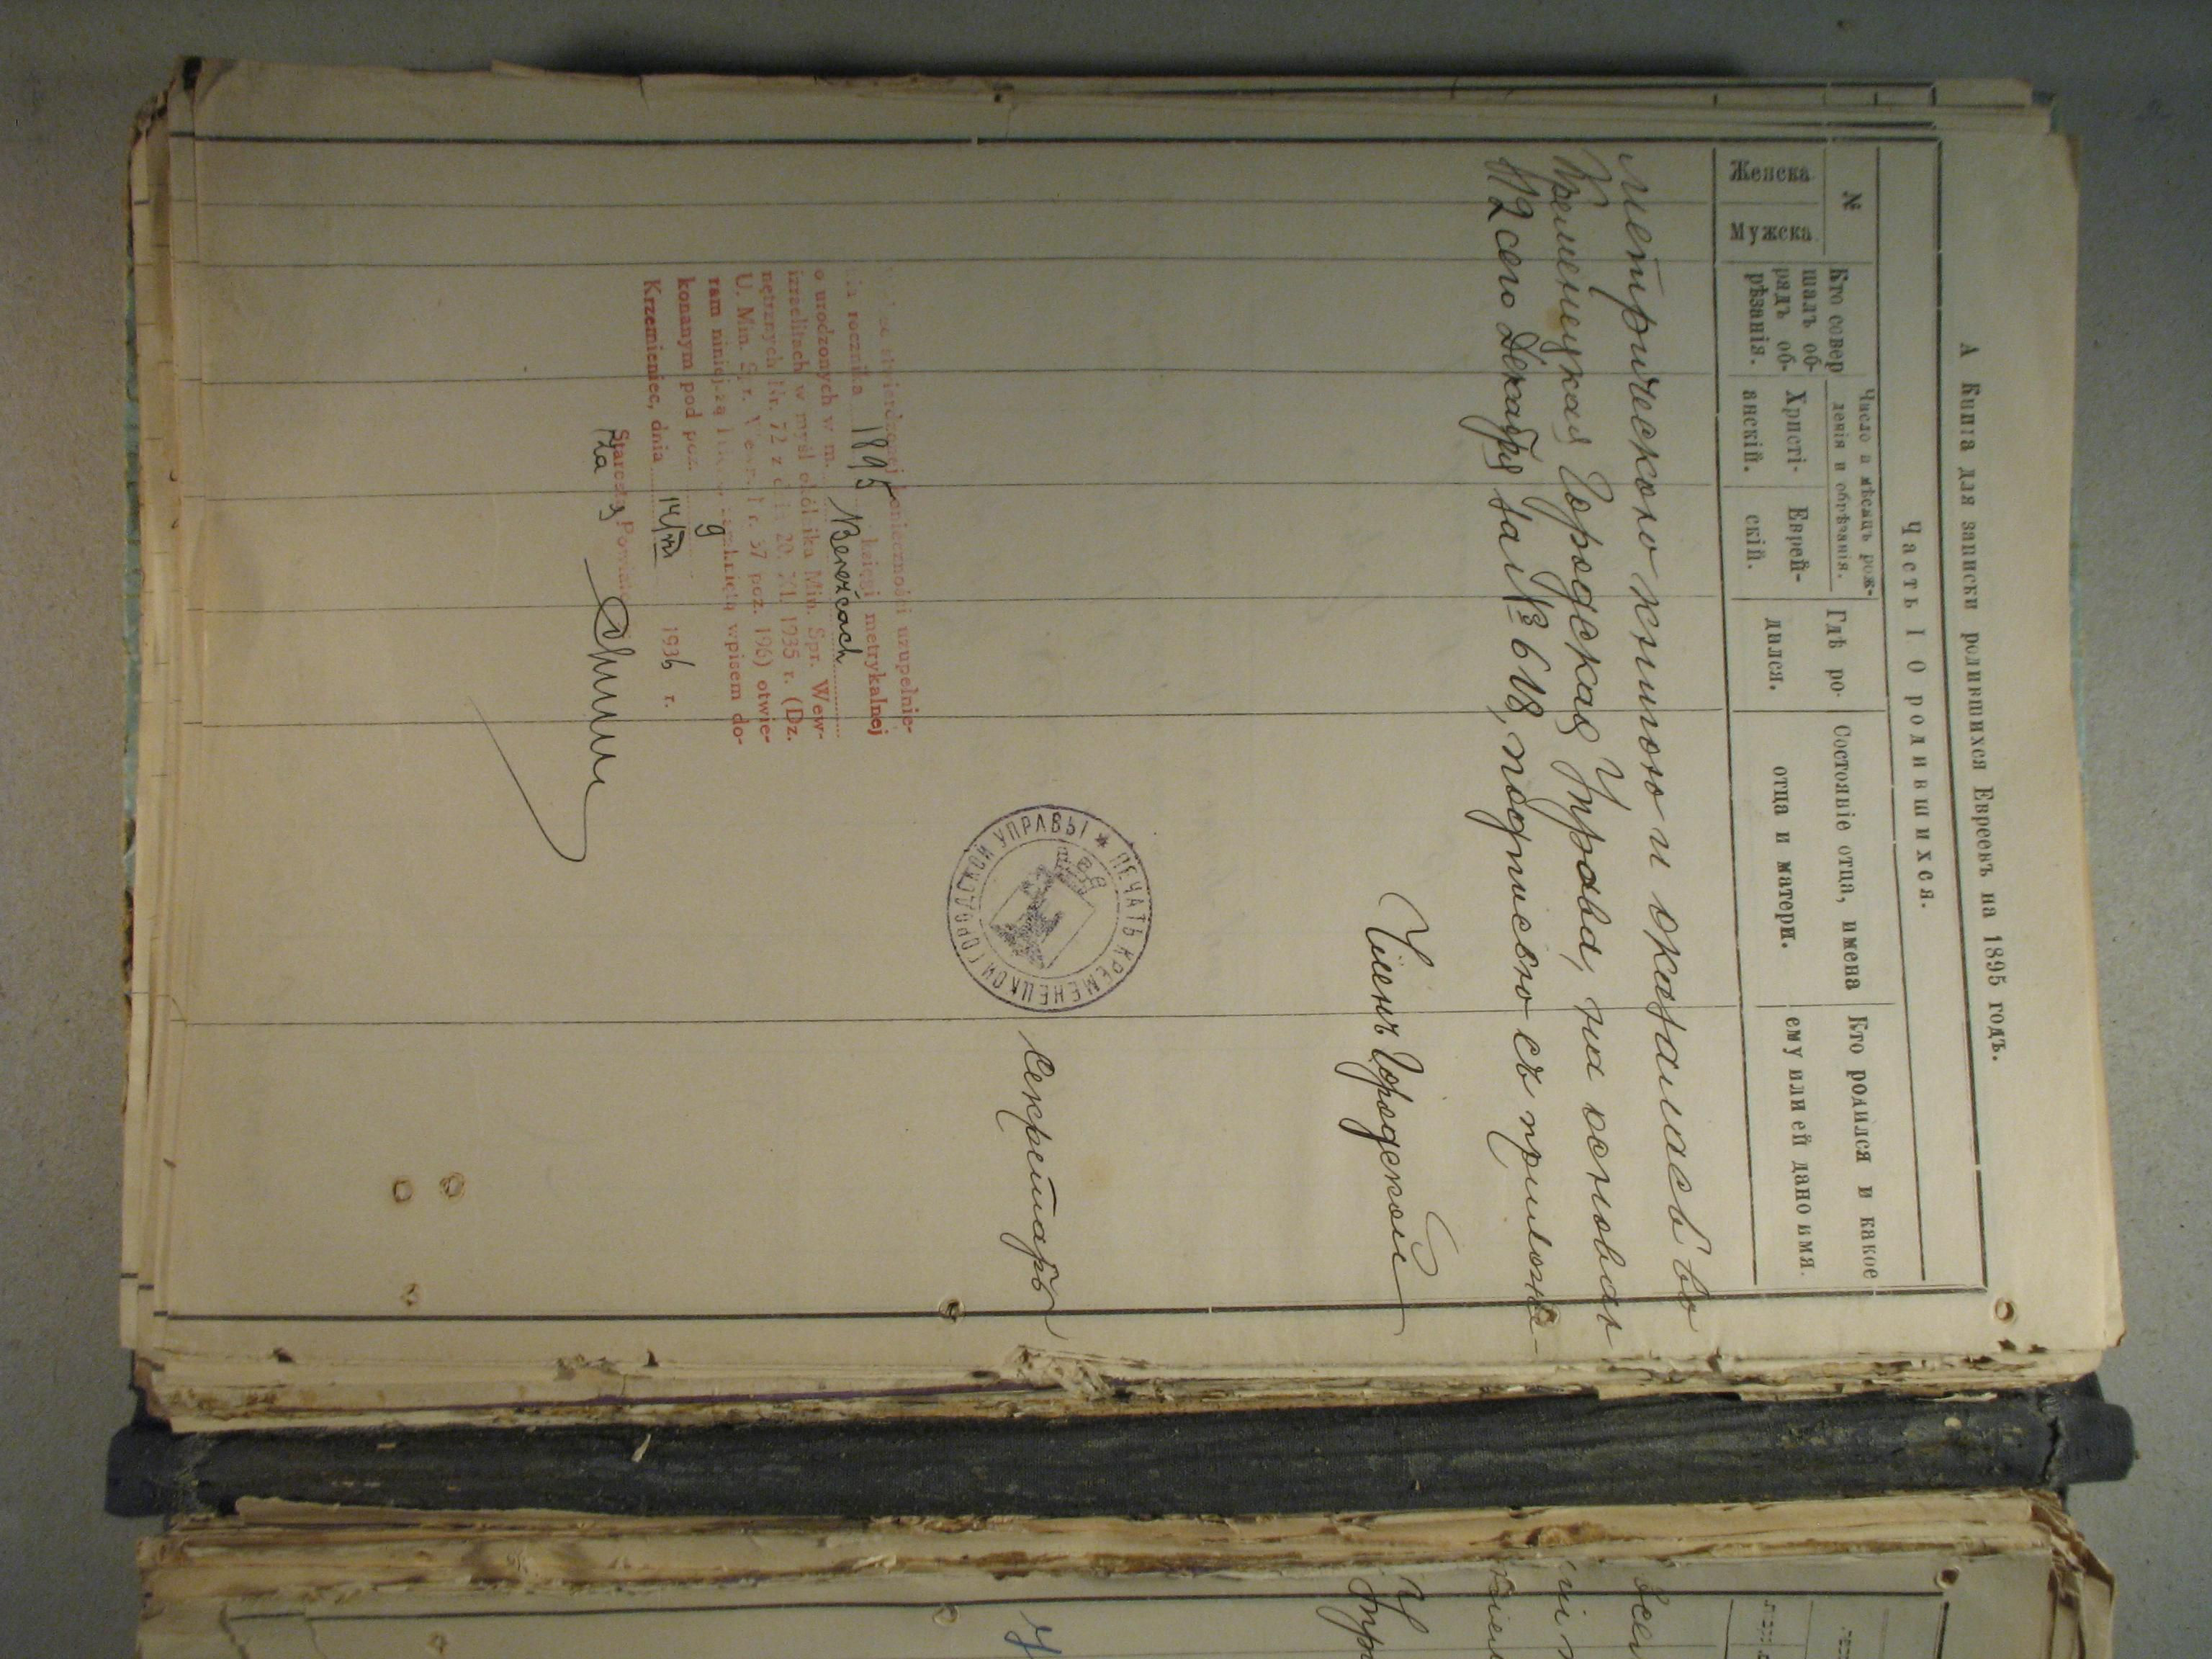 А Книга для записки родившихся Евреевъ на 1895 годъ.
Часть I О родившихся.
№
Женска
Мужска
Кто совер
шалъ об-
рядъ об-
рѣзанія.
Число а мѣсяцъ рож-
денія и обрѣзанія.
Христі-
анскій.
Еврей-
скій.
Гдѣ ро-
дился.
Состояніе отца, имена
отца и матери.
Кто родился и какое
ему или ей дано имя.
метрическою книгою и оказалась во
Кременецкая Городская Управа, на основан
12 сего Декабря за №3618, подписью съ приложе-
Членъ Городской
Секретарь
ПЕЧАТЬ КРЕМЕНЕЦКОЙ ГОРОДСКОЙ УПРАВЫ *
konieczności uzupełnie-
nia rocznika 1895 księgi metrykalnej
o urodzonych w m. Bereżcach
izraelitach w myśl okólnika Min. Spr. Wew-
nętrznych Nr. 72 z dnia 20. XI. 1935 r. (Dz.
U. Min. Spr. Wewn. Nr. 37 poz. 196) otwie-
ram niniejszą wpisem do-
konanym pod poz. 9
Krzemieniec, dnia 14/VII 1936 r.
za Starosta